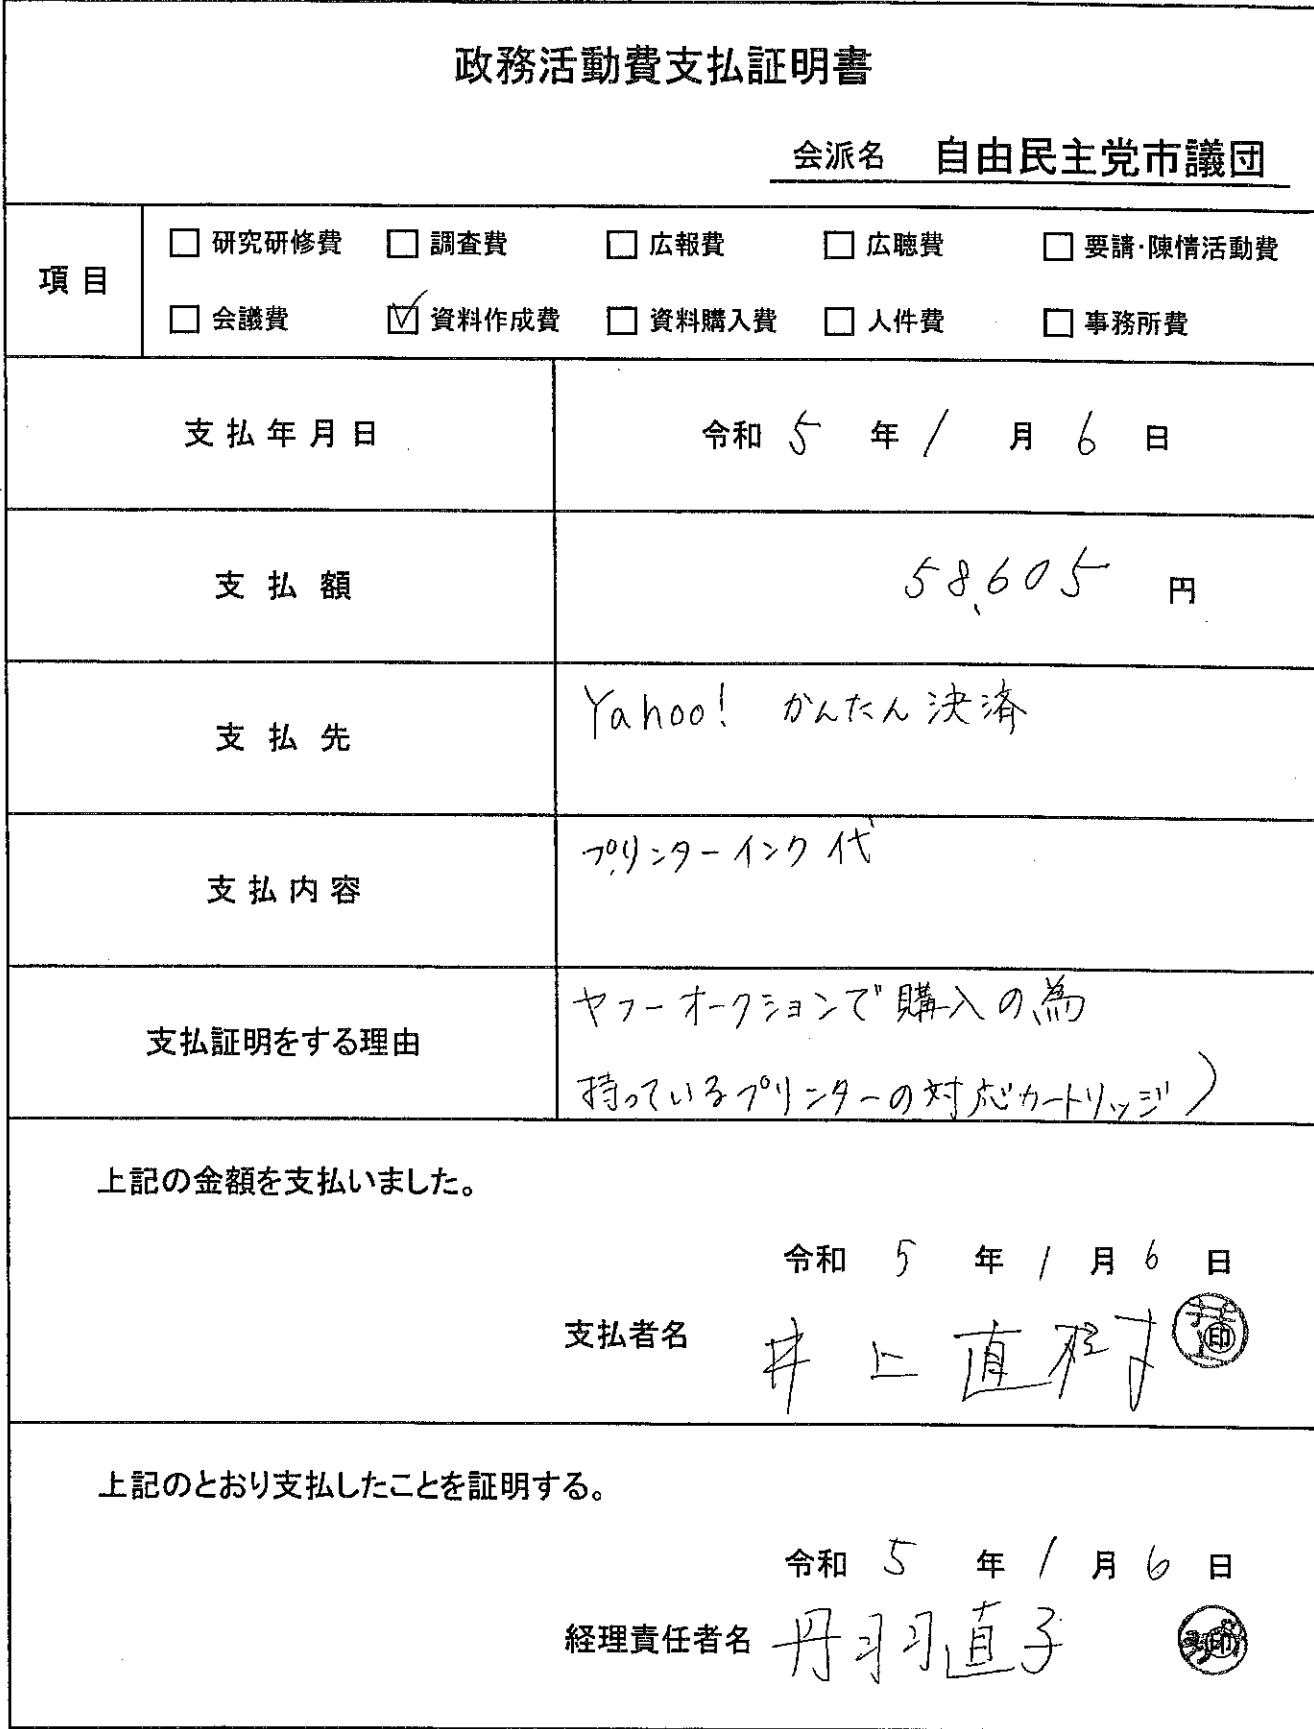 政務活動費支払証明書
会派名 自由民主党市議団
項目
□ 研究研修費 □ 調査費 □ 広報費 □ 広聴費 □ 要請・陳情活動費
□ 会議費 ☑ 資料作成費 □ 資料購入費 □ 人件費 □ 事務所費
支払年月日 令和 5 年 1 月 6 日
支払額 58,605 円
支払先 Yahoo! かんたん決済
支払内容 プリンターインク代
支払証明をする理由 ヤフーオークションで購入の為
持っているプリンターの対応カートリッジ)
上記の金額を支払いました。
令和 5 年 1 月 6 日
支払者名 井上直 印
上記のとおり支払したことを証明する。
令和 5 年 1 月 6 日
経理責任者名 丹羽直子 印